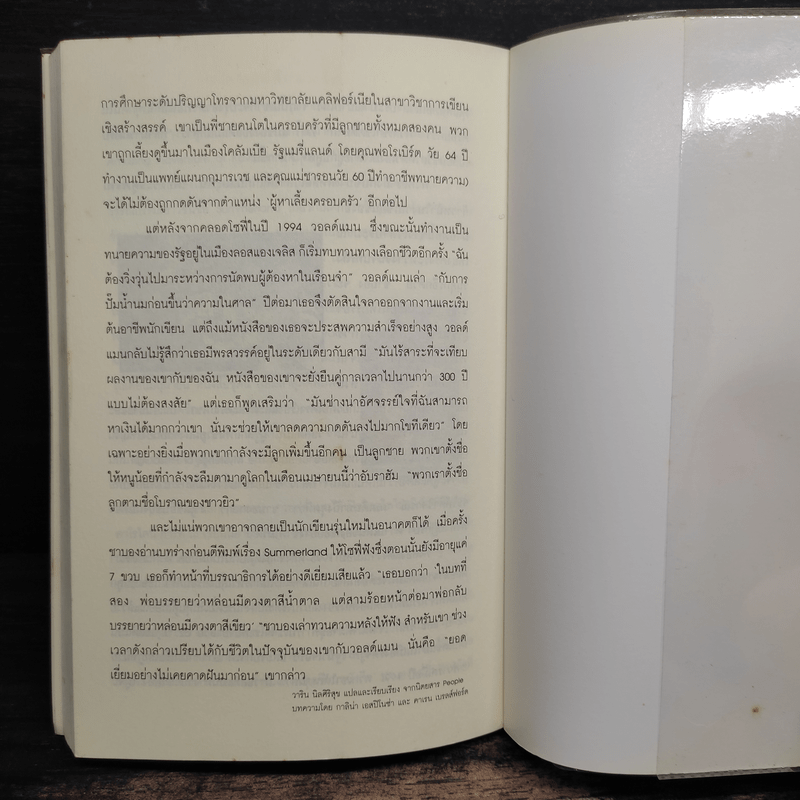 การศึกษาระดับปริญญาโทรจากมหาวิทยาลัยแคลิฟอร์เนียในสาขาวิชาการเขียน
เชิงสร้างสรรค์ เขาเป็นพี่ชายคนโตในครอบครัวที่มีลูกชายทั้งหมดสองคน พวก
เขาถูกเลี้ยงดูขึ้นมาในเมืองโคลัมเบีย รัฐแมรี่แลนด์ โดยคุณพ่อโรเบิร์ต วัย 64 ปี
ทำงานเป็นแพทย์แผนกกุมารเวช และคุณแม่ชารอนวัย 60 ปีทำอาชีพทนายความ)
จะได้ไม่ต้องถูกกดดันจากตำแหน่ง ‘ผู้หาเลี้ยงครอบครัว’ อีกต่อไป
แต่หลังจากคลอดโซฟี่ในปี 1994 วอลด์แมน ซึ่งขณะนั้นทำงานเป็น
ทนายความของรัฐอยู่ในเมืองลอสแองเจลิส ก็เริ่มทบทวนทางเลือกชีวิตอีกครั้ง “ฉัน
ต้องวิ่งวุ่นไปมาระหว่างการนัดพบผู้ต้องหาในเรือนจำ” วอลด์แมนเล่า “กับการ
ปั๊มน้ำนมก่อนขึ้นว่าความในศาล” ปีต่อมาเธอจึงตัดสินใจลาออกจากงานและเริ่ม
ต้นอาชีพนักเขียน แต่ถึงแม้หนังสือของเธอจะประสพความสำเร็จอย่างสูง วอลด์
แมนกลับไม่รู้สึกว่าเธอมีพรสวรรค์อยู่ในระดับเดียวกับสามี “มันไร้สาระที่จะเทียบ
ผลงานของเขากับของฉัน หนังสือของเขาจะยั่งยืนคู่กาลเวลาไปนานกว่า 300 ปี
แบบไม่ต้องสงสัย” แต่เธอก็พูดเสริมว่า “มันช่างน่าอัศจรรย์ใจที่ฉันสามารถ
หาเงินได้มากกว่าเขา นั่นจะช่วยให้เขาลดความกดดันลงไปมากโขทีเดียว” โดย
เฉพาะอย่างยิ่งเมื่อพวกเขากำลังจะมีลูกเพิ่มขึ้นอีกคน เป็นลูกชาย พวกเขาตั้งชื่อ
ให้หนูน้อยที่กำลังจะลืมตามาดูโลกในเดือนเมษายนนี้ว่าอับราฮัม “พวกเราตั้งชื่อ
ลูกตามชื่อโบราณของชาวยิว”
และไม่แน่พวกเขาอาจกลายเป็นนักเขียนรุ่นใหม่ในอนาคตก็ได้ เมื่อครั้ง
ชาบองอ่านบทร่างก่อนตีพิมพ์เรื่อง Summerland ให้โซฟี่ฟังซึ่งตอนนั้นยังมีอายุแค่
7 ขวบ เธอก็ทำหน้าที่บรรณาธิการได้อย่างดีเยี่ยมเสียแล้ว “เธอบอกว่า ‘ในบทที่
สอง พ่อบรรยายว่าหล่อนมีดวงตาสีน้ำตาล แต่สามร้อยหน้าต่อมาพ่อกลับ
บรรยายว่าหล่อนมีดวงตาสีเขียว’ “ชาบองเล่าทวนความหลังให้ฟัง สำหรับเขา ช่วง
เวลาดังกล่าวเปรียบได้กับชีวิตในปัจจุบันของเขากับวอลด์แมน นั่นคือ “ยอด
เยี่ยมอย่างไม่เคยคาดฝันมาก่อน” เขากล่าว
วาริน นิลศิริสุข แปลและเรียบเรียง จากนิตยสาร People
บทความโดย กาลิน่า เอสปิโนซ่า และ คาเรน เบรลส์ฟอร์ด